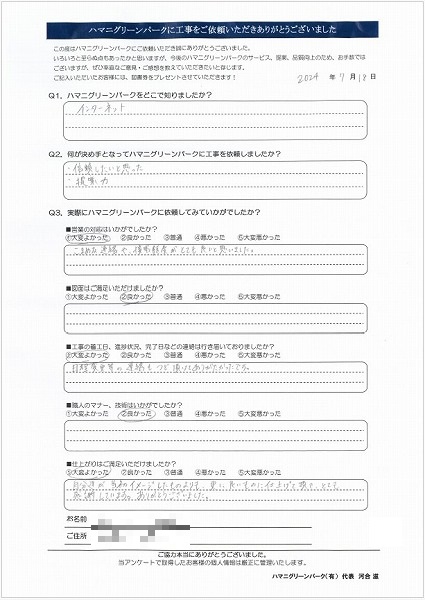 ハマニグリーンパークに工事をご依頼いただきありがとうございました
この度はハマニグリーンパークにご依頼いただき誠にありがとうございました。
いろいろと至らぬ点もあったかと思いますが、今後のハマニグリーンパークのサービス、提案、品質向上のため、お手数では
ございますが、ぜひ率直なご意見・ご感想を教えていただきたいと存じます。
ご記入いただいたお客様には、図書券をプレゼントさせていただきます！
2024 年 7 月 18 日
Q1、ハマニグリーンパークをどこで知りましたか？
インターネット
Q2、何が決め手となってハマニグリーンパークに工事を依頼しましたか？
・信頼したいと思った
・提案力
Q3、実際にハマニグリーンパークに依頼してみていかがでしたか？
■営業の対応はいかがでしたか？
①大変よかった ②良かった ③普通 ④悪かった ⑤大変悪かった
こまめな連絡や、
とても良いと思いました。
■図面はご満足いただけましたか？
①大変よかった ②良かった ③普通 ④悪かった ⑤大変悪かった
■工事の着工日、進捗状況、完了日などの連絡は行き届いておりましたか？
①大変よかった ②良かった ③普通 ④悪かった ⑤大変悪かった
日程変更等の連絡も
ありがたかったです。
■職人のマナー、技術はいかがでしたか？
①大変よかった ②良かった ③普通 ④悪かった ⑤大変悪かった
■仕上がりはご満足いただけましたか？
①大変よかった ②良かった ③普通 ④悪かった ⑤大変悪かった
自分達が当初イメージしたものよりも、更に良いものに仕上げて頂き、とても
感謝しています。ありがとうございました。
お名前
ご住所
ご協力本当にありがとうございました。
当アンケートで取得したお客様の個人情報は厳正に管理いたします。
ハマニグリーンパーク（有） 代表 河合 滋